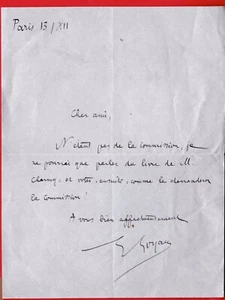 Paris 13/XII
Cher ami,
N'étant pas de la commission, je
ne pourrai que parler du livre de M.
et voter, ensuite, comme le demandera
la commission!
A vous bien affectueusement